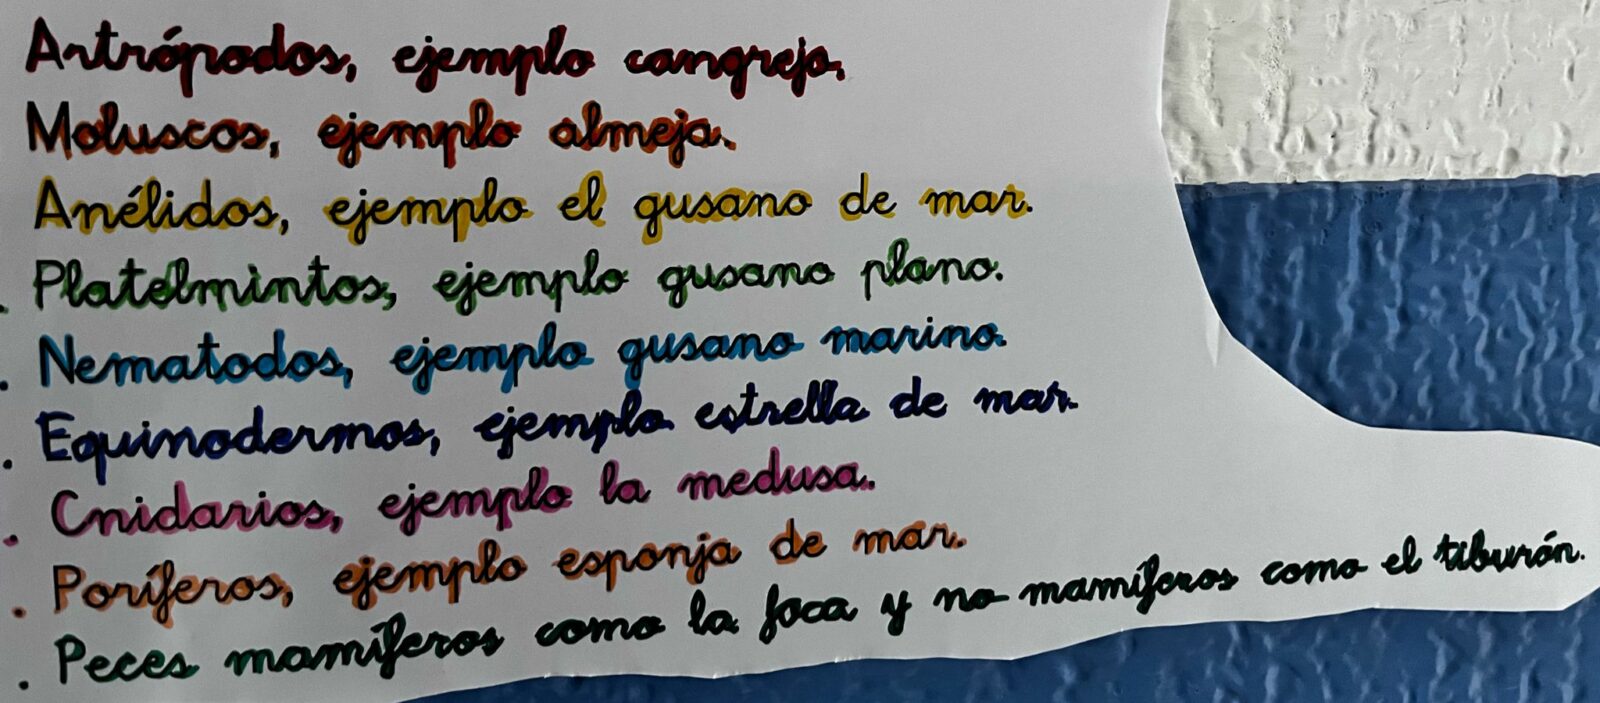 Artrópodos, ejemplo cangrejo.
Moluscos, ejemplo almeja.
Anélidos, ejemplo el gusano de mar.
. Platelmintos, ejemplo gusano plano.
. Nematodos, ejemplo gusano marino.
. Equinodermos, ejemplo estrella de mar.
. Cnidarios, ejemplo la medusa.
. Poríferos, ejemplo esponja de mar.
. Peces mamíferos como la foca y no mamíferos como el tiburón.